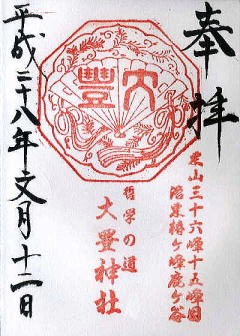 奉拝
東山三十六峰十五峰目
洛東椿ヶ峰鹿ヶ谷
大豊
哲学の道
大豊神社
平成二十八年文月十二日